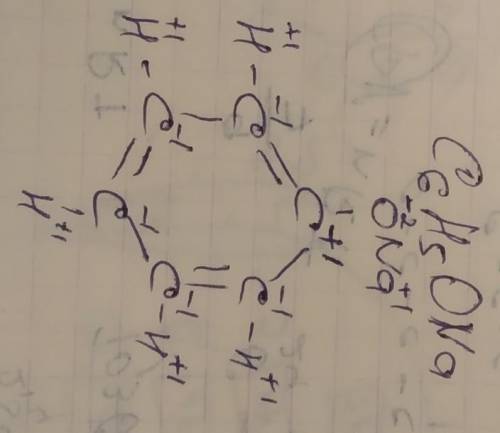 C₆H₅ONa
O⁻²Na⁺¹
C⁺¹
H⁺¹ - C⁻¹ C⁻¹ - H⁺¹
H⁺¹ - C⁻¹ = C⁻¹ - H⁺¹
C⁻¹
H⁺¹